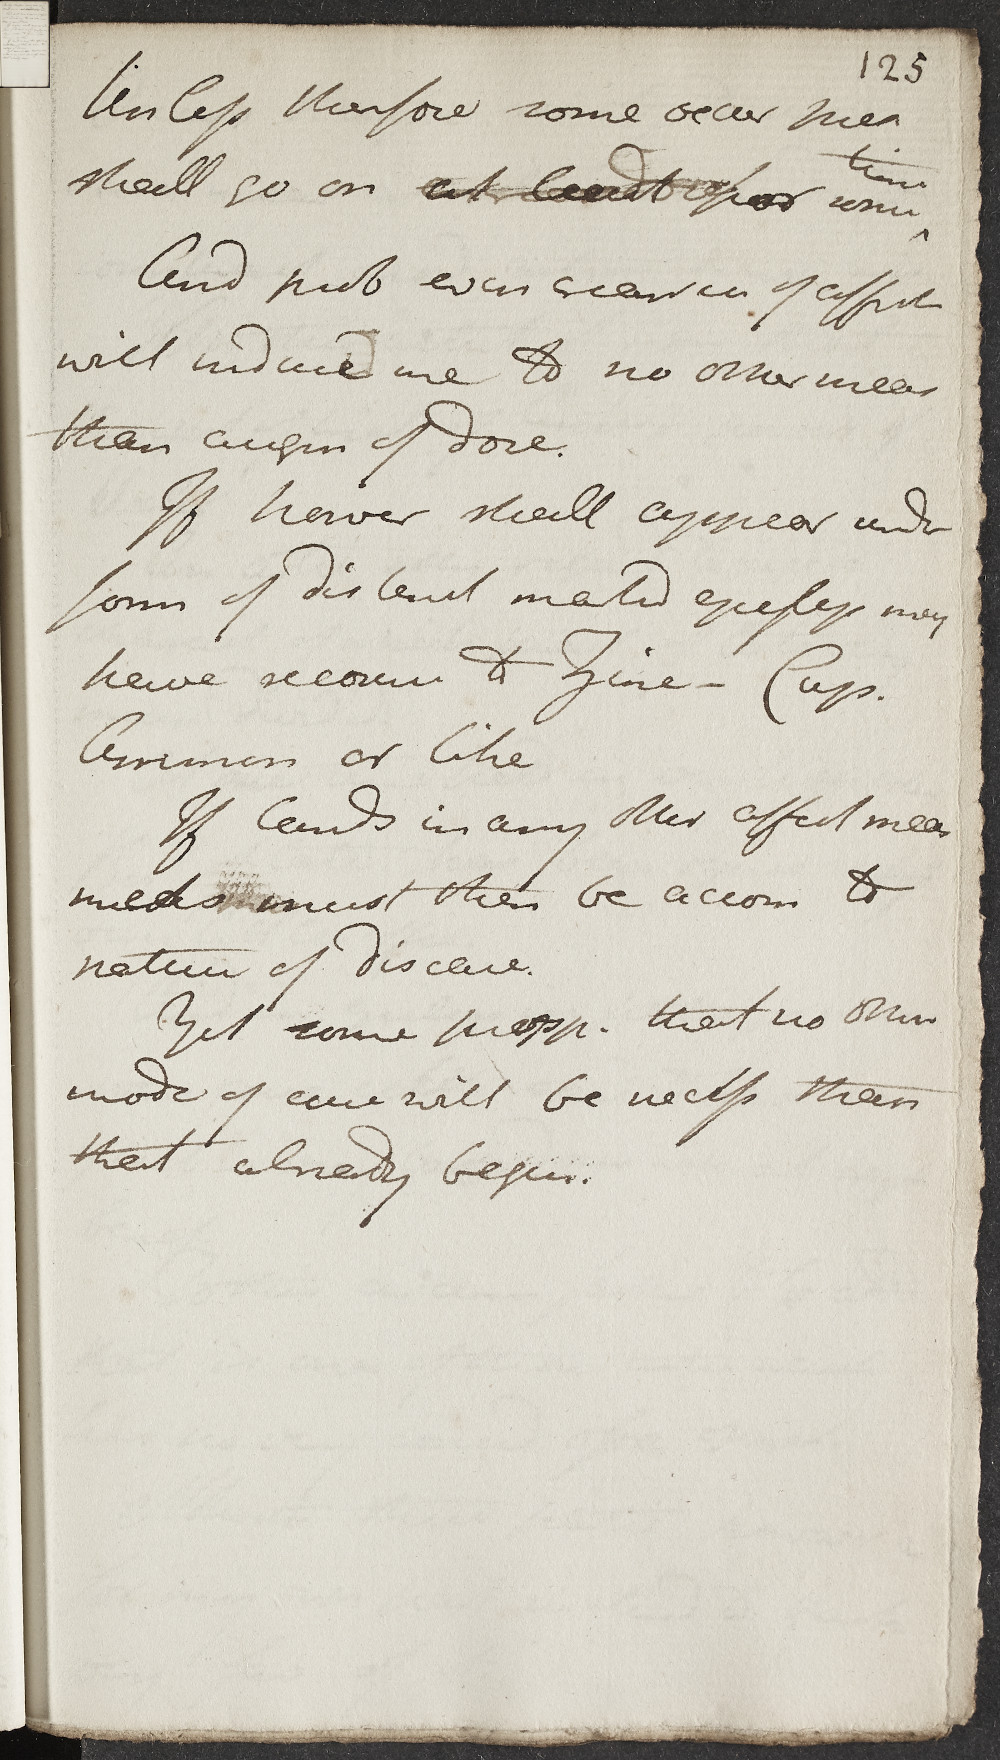 125
Unless therfore some occur
shall go on at least for some time
And prob even recurren of affect
will induce me to no other meas
than augm of dose.
If hower shall appear undr
form of distinct marked epileps may
have recourse to Zinc - Cup.
Ammon or like
If lands in any other affect meas
must then be accom to
nature of disease.
Yet some prosp. that no other
mode of cure will be necess than
that already begun.